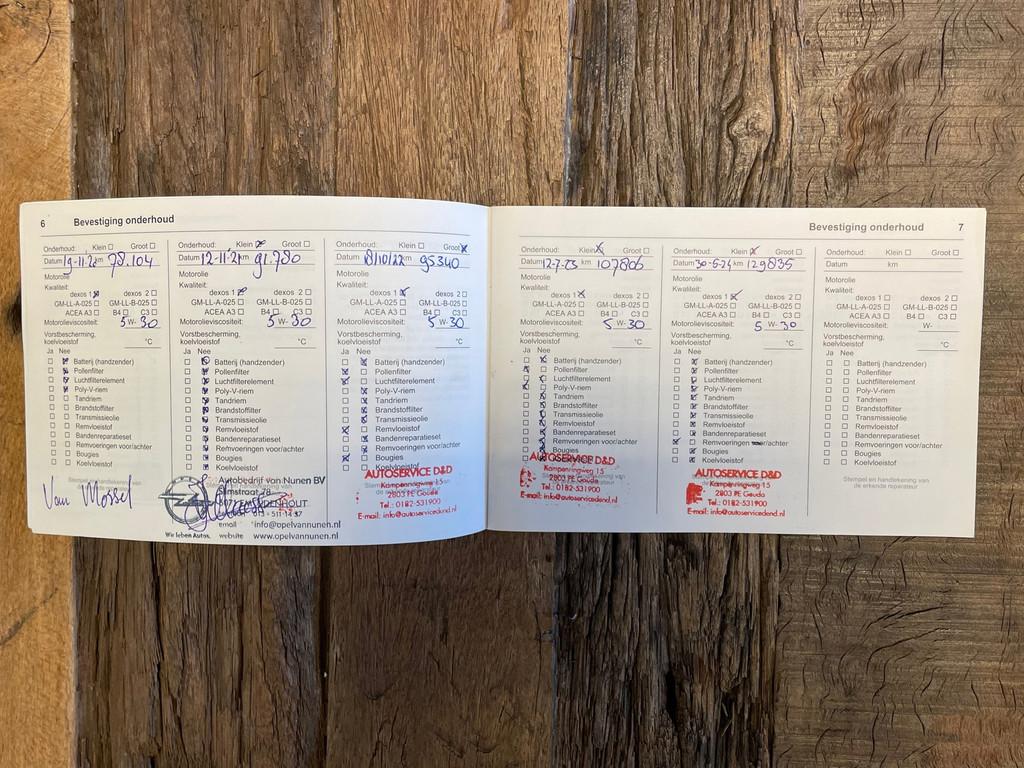 6 Bevestiging onderhoud
Onderhoud: Klein ☐ Groot ☐
Datum km 78.104
Motorolie
Kwaliteit:
dexos 1 ☒ dexos 2 ☐
GM-LL-A-025 ☐ GM-LL-B-025 ☐
ACEA A3 ☐ B4 ☐ C3 ☐
Motorolieviscositeit: 5 W- 30
Vorstbescherming,
koelvloeistof °C
Ja Nee
Batterij (handzender)
Pollenfilter
Luchtfilterelement
Poly-V-riem
Tandriem
Brandstoffilter
Transmissieolie
Remvloeistof
Bandenreparatieset
Remvoeringen voor/achter
Bougies
Koelvloeistof
Van Mossel
Onderhoud: Klein ☒ Groot ☐
Datum 12-11-21 km 91.780
Motorolie
Kwaliteit:
dexos 1 ☒ dexos 2 ☐
GM-LL-A-025 ☐ GM-LL-B-025 ☐
ACEA A3 ☐ B4 ☐ C3 ☐
Motorolieviscositeit: 5 W- 30
Vorstbescherming,
koelvloeistof °C
Ja Nee
Batterij (handzender)
Pollenfilter
Luchtfilterelement
Poly-V-riem
Tandriem
Brandstoffilter
Transmissieolie
Remvloeistof
Bandenreparatieset
Remvoeringen voor/achter
Bougies
Koelvloeistof
Autobedrijf van Nunen BV
email info@opelvannunen.nl
Wir leben Autos. website www.opelvannunen.nl
Onderhoud: Klein ☐ Groot ☒
Datum 8/10/22 km 95340
Motorolie
Kwaliteit:
dexos 1 ☒ dexos 2 ☐
GM-LL-A-025 ☐ GM-LL-B-025 ☐
ACEA A3 ☐ B4 ☐ C3 ☐
Motorolieviscositeit: 5 W- 30
Vorstbescherming,
koelvloeistof °C
Ja Nee
Batterij (handzender)
Pollenfilter
Luchtfilterelement
Poly-V-riem
Tandriem
Brandstoffilter
Transmissieolie
Remvloeistof
Bandenreparatieset
Remvoeringen voor/achter
Bougies
Koelvloeistof
AUTOSERVICE D&D
Kampenringweg 15
2803 PE Gouda
Tel.: 0182-531900
E-mail: info@autoservicedend.nl
Bevestiging onderhoud 7
Onderhoud: Klein ☒ Groot ☐
Datum 12-7-23 km 107806
Motorolie
Kwaliteit:
dexos 1 ☒ dexos 2 ☐
GM-LL-A-025 ☐ GM-LL-B-025 ☐
ACEA A3 ☐ B4 ☐ C3 ☐
Motorolieviscositeit: 5 W- 30
Vorstbescherming,
koelvloeistof °C
Ja Nee
Batterij (handzender)
Pollenfilter
Luchtfilterelement
Poly-V-riem
Tandriem
Brandstoffilter
Transmissieolie
Remvloeistof
Bandenreparatieset
Remvoeringen voor/achter
Bougies
Koelvloeistof
AUTOSERVICE D&D
Kampenringweg 15
2803 PE Gouda
Tel.: 0182-531900
E-mail: info@autoservicedend.nl
Onderhoud: Klein ☒ Groot ☐
Datum 30-5-24 km 129835
Motorolie
Kwaliteit:
dexos 1 ☒ dexos 2 ☐
GM-LL-A-025 ☐ GM-LL-B-025 ☐
ACEA A3 ☐ B4 ☐ C3 ☐
Motorolieviscositeit: 5 W- 30
Vorstbescherming,
koelvloeistof °C
Ja Nee
Batterij (handzender)
Pollenfilter
Luchtfilterelement
Poly-V-riem
Tandriem
Brandstoffilter
Transmissieolie
Remvloeistof
Bandenreparatieset
Remvoeringen voor/achter
Bougies
Koelvloeistof
AUTOSERVICE D&D
Kampenringweg 15
2803 PE Gouda
Tel.: 0182-531900
E-mail: info@autoservicedend.nl
Onderhoud: Klein ☐ Groot ☐
Datum km
Motorolie
Kwaliteit:
dexos 1 ☐ dexos 2 ☐
GM-LL-A-025 ☐ GM-LL-B-025 ☐
ACEA A3 ☐ B4 ☐ C3 ☐
Motorolieviscositeit: W-
Vorstbescherming,
koelvloeistof °C
Ja Nee
Batterij (handzender)
Pollenfilter
Luchtfilterelement
Poly-V-riem
Tandriem
Brandstoffilter
Transmissieolie
Remvloeistof
Bandenreparatieset
Remvoeringen voor/achter
Bougies
Koelvloeistof
Stempel en handtekening van
de erkende reparateur